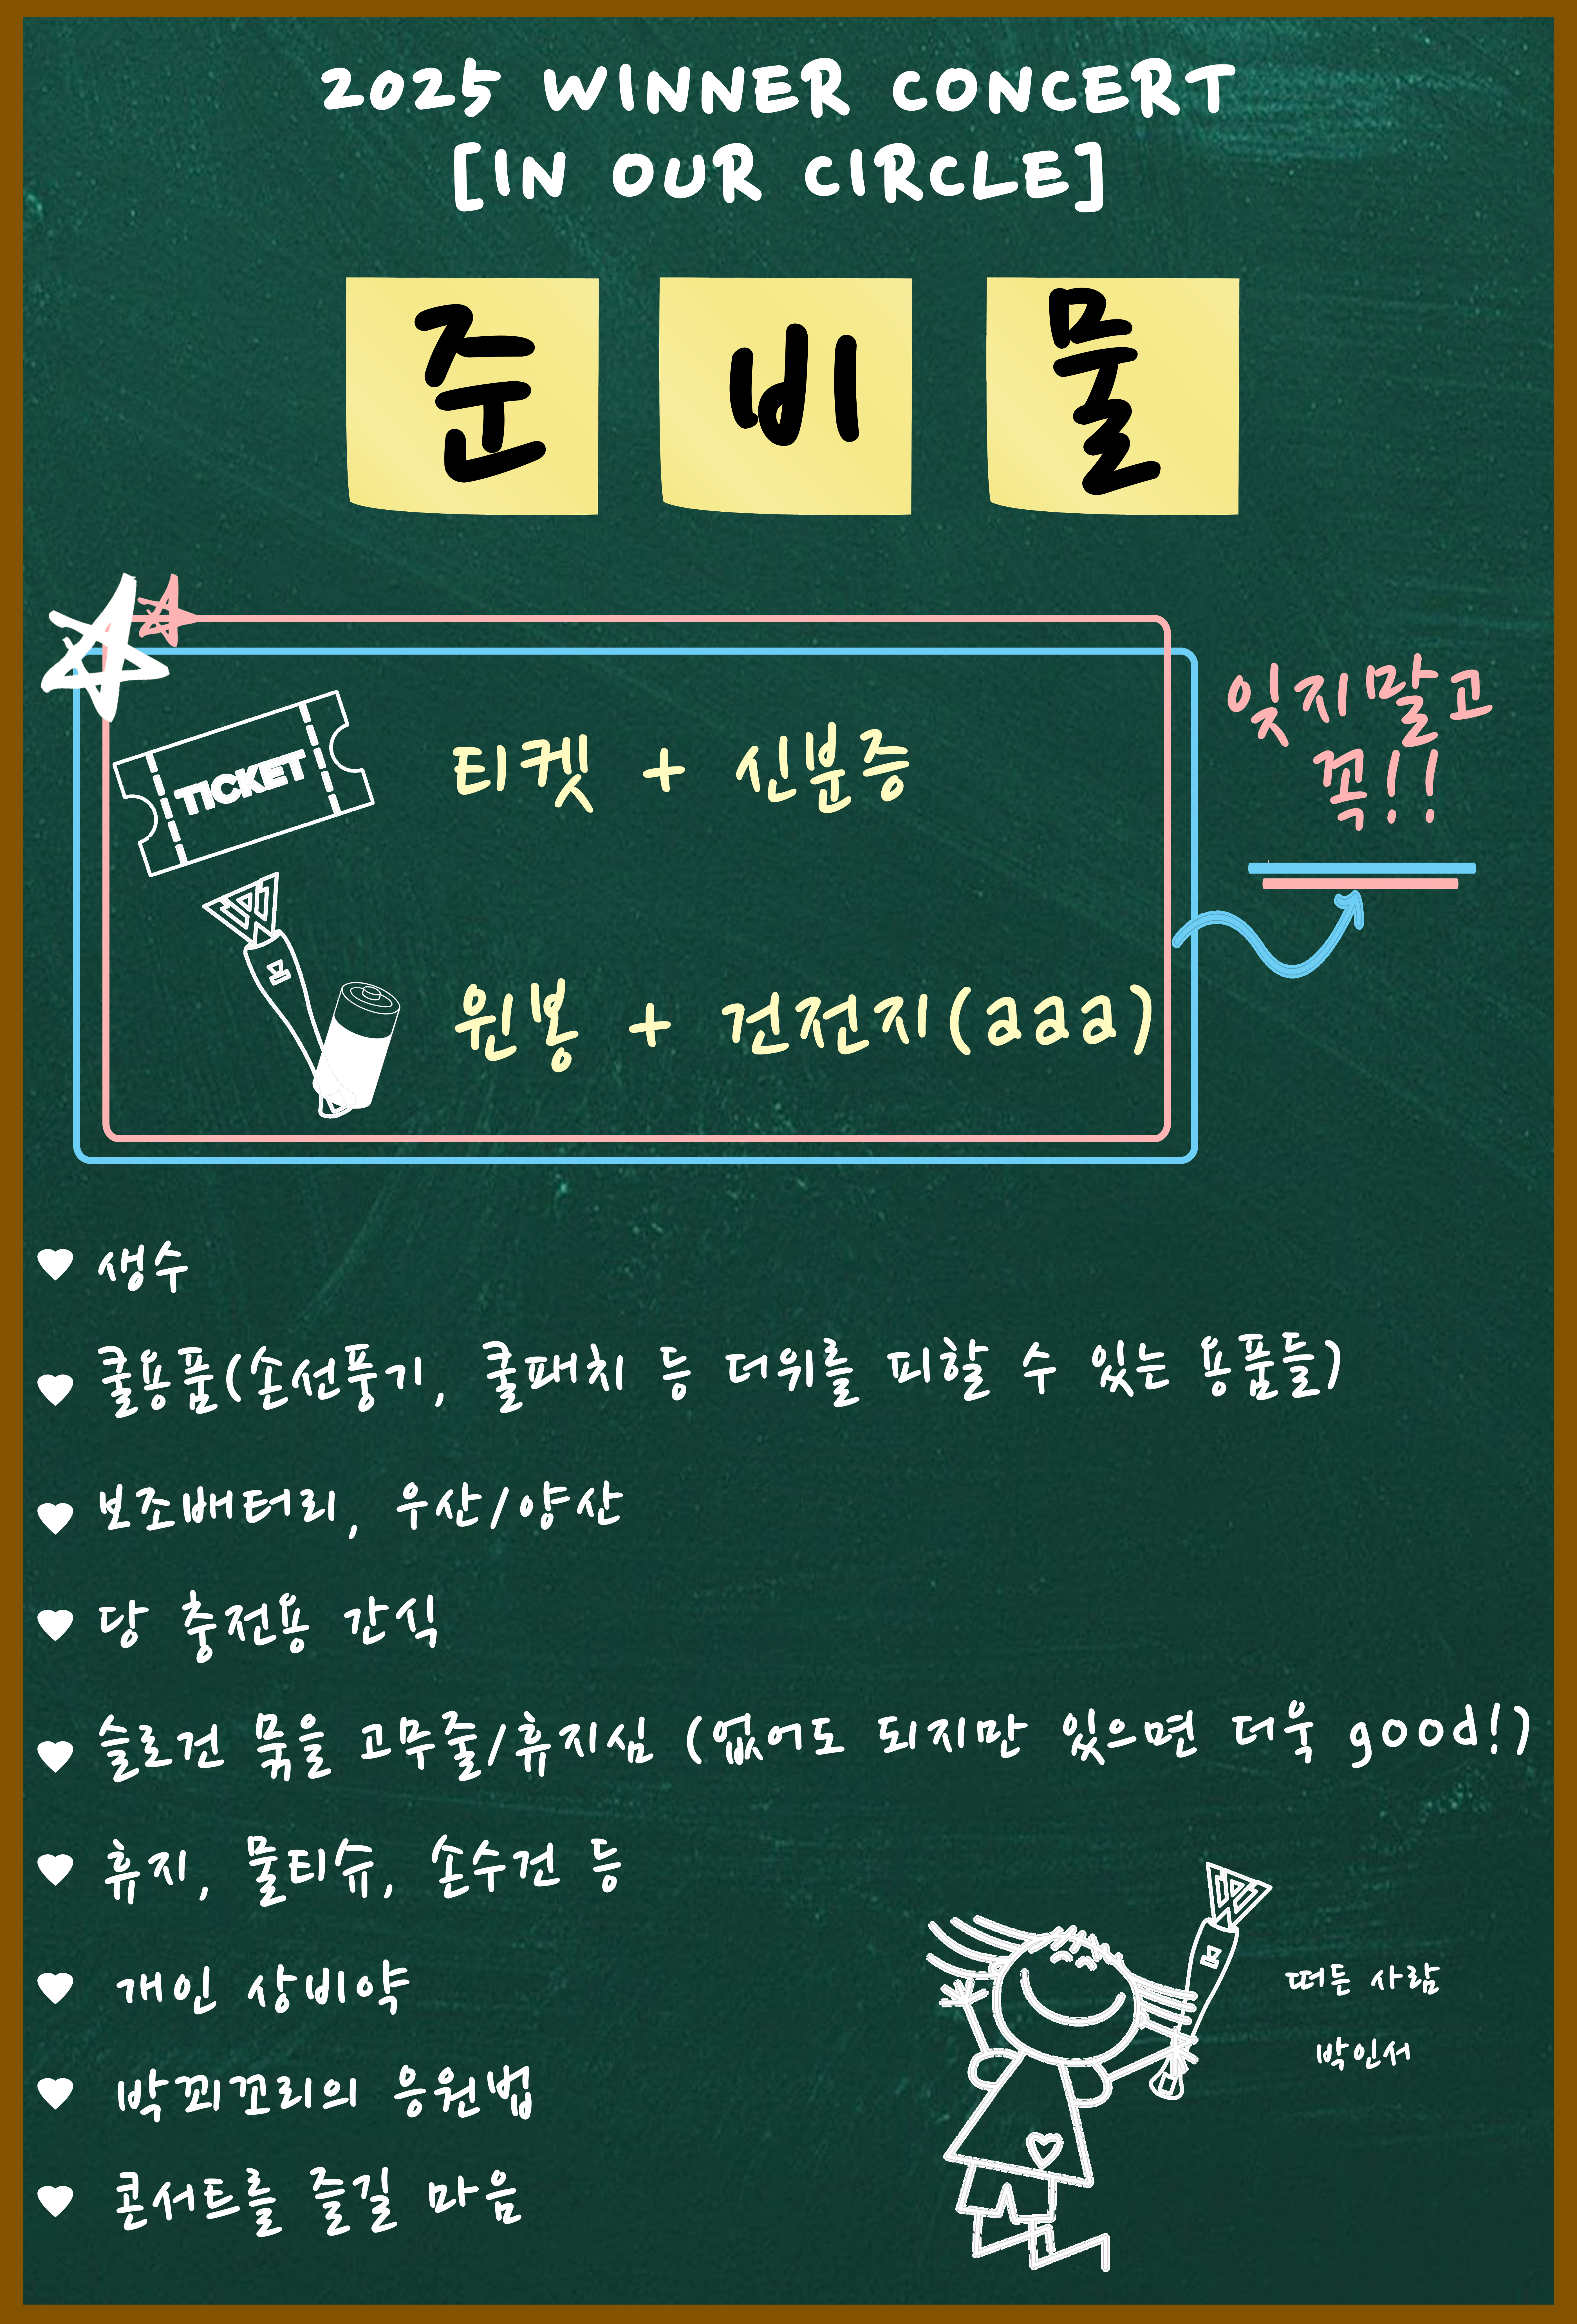 2025 WINNER CONCERT
[IN OUR CIRCLE]
준 비 물
잊지말고
꼭!!
TICKET
티켓 + 신분증
원봉 + 건전지(aaa)
생수
쿨용품(손선풍기, 쿨패치 등 더위를 피할 수 있는 용품들)
보조배터리, 우산/양산
당 충전용 간식
슬로건 묶을 고무줄/휴지심 (없어도 되지만 있으면 더욱 good!)
휴지, 물티슈, 손수건 등
개인 상비약
박꾀꼬리의 응원법
콘서트를 즐길 마음
떠든 사람
박인서